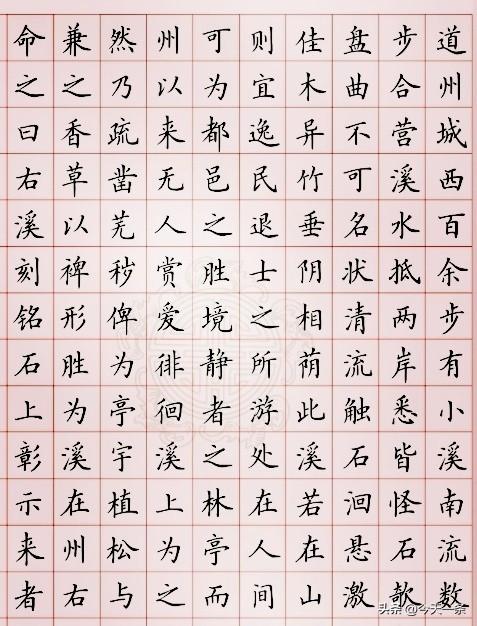 道州城西百余步有小溪南流数
步合营溪水抵两岸悉皆怪石欹
盘曲不可名状清流触石洄悬激
佳木异竹垂阴相荫此溪若在山
则宜逸民退士之所游处在人间
可为都邑之胜境静者之林亭而
州以来无人赏爱徘徊溪上为之
然乃疏凿芜秽俾为亭宇植松与
兼之香草以裨形胜为溪在州右
命之曰右溪刻铭石上彰示来者
头条 @今天一条